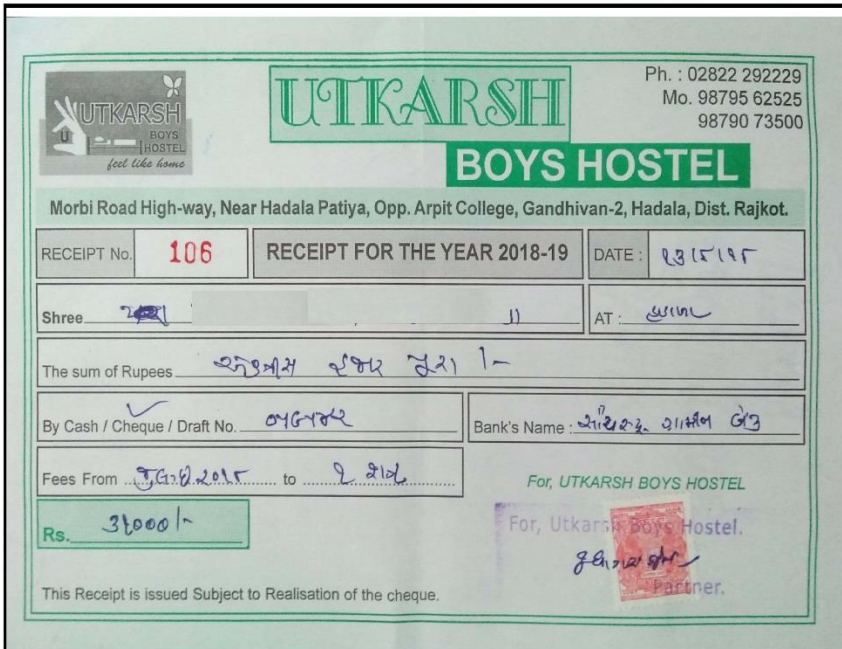 UTKARSH
BOYS
HOSTEL
feel like home
UTKARSH
BOYS HOSTEL
Ph. : 02822 292229
Mo. 98795 62525
98790 73500
Morbi Road High-way, Near Hadala Patiya, Opp. Arpit College, Gandhivan-2, Hadala, Dist. Rajkot.
RECEIPT No. 106 RECEIPT FOR THE YEAR 2018-19 DATE :
Shree AT :
The sum of Rupees એકત્રીસ હજાર પુરા /-
By Cash / Cheque / Draft No. Bank's Name : ગ્રામીણ બેંક
Fees From જુલાઈ ૨૦૧૮ to
For, UTKARSH BOYS HOSTEL
Rs. ૩૧૦૦૦/-
For, Utkarsh Boys Hostel.
Partner.
This Receipt is issued Subject to Realisation of the cheque.